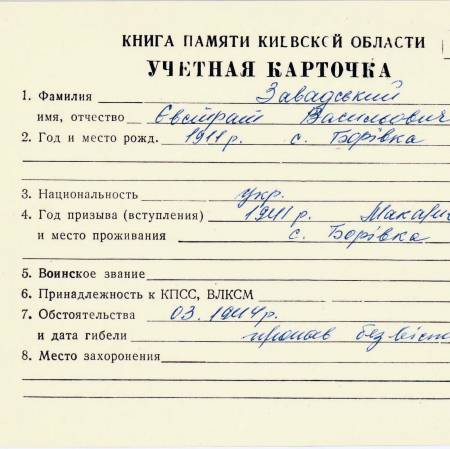 КНИГА ПАМЯТИ КИЕВСКОЙ ОБЛАСТИ
УЧЕТНАЯ КАРТОЧКА
1. Фамилия Завадський
имя, отчество Євстрат Васильович
2. Год и место рожд. 1911 р. с. Борівка
3. Национальность укр.
4. Год призыва (вступления) 1941 р. Макарі
и место проживания с. Борівка
5. Воинское звание
6. Принадлежность к КПСС, ВЛКСМ
7. Обстоятельства 03.1944 р.
и дата гибели пропав безвіст
8. Место захоронения